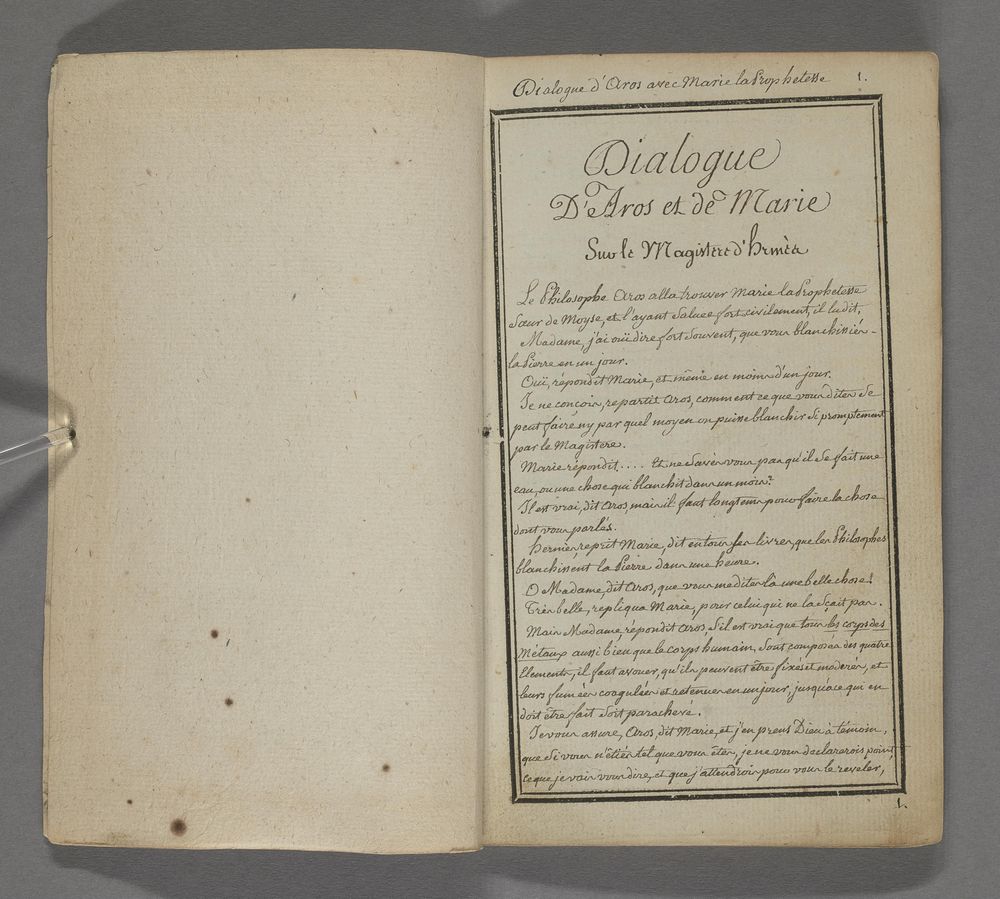 Dialogue d'Aros avec Marie la Prophetesse 1.
Dialogue
D'Aros et de Marie
Sur le Magistere d'hermès
Le Philosophe Aros alla trouver Marie la Prophetesse
Sœur de Moyse, et l'ayant saluee fort civilement, il lu dit,
Madame, j'ai ouï dire fort souvent, que vous blanchissiés
la Pierre en un jour.
Oui, répondit Marie, et même en moins d'un jour.
Je ne conçois, repartit Aros, comment ce que vous dites se
peut faire ny par quel moyen on puisse blanchir si promptement
par le Magistere.
Marie répondit.... Et ne savés vous pas qu'il se fait une
eau, ou une chose qui blanchit dans un mois?
Il est vrai, dit Aros, mais il faut longtems pour faire la chose
dont vous parlés.
hermes, reprit Marie, dit en tous ses livres, que les Philosophes
blanchissent la Pierre dans une heure.
O Madame, dit Aros, que vous me dites là une belle chose!
Très belle, repliqua Marie, pour celui qui ne la scait pas.
Mais Madame, répondit Aros, s'il est vrai que tous les corps des
Métaux aussi bien que le corps humain, sont composés des quatre
Elements, il faut avouer, qu'ils peuvent être fixés et moderés, et
leurs fumées coagulées et retenues en un jour, jusqu'à ce qui en
doit être fait soit parachevé.
Je vous assure, Aros, dit Marie, et j'en prens Dieu à témoin,
que si vous n'étiés tel que vous êtes, je ne vous declarerois point
ce que je vais vous dire, et que j'attendrois pour vous le reveler,
1.